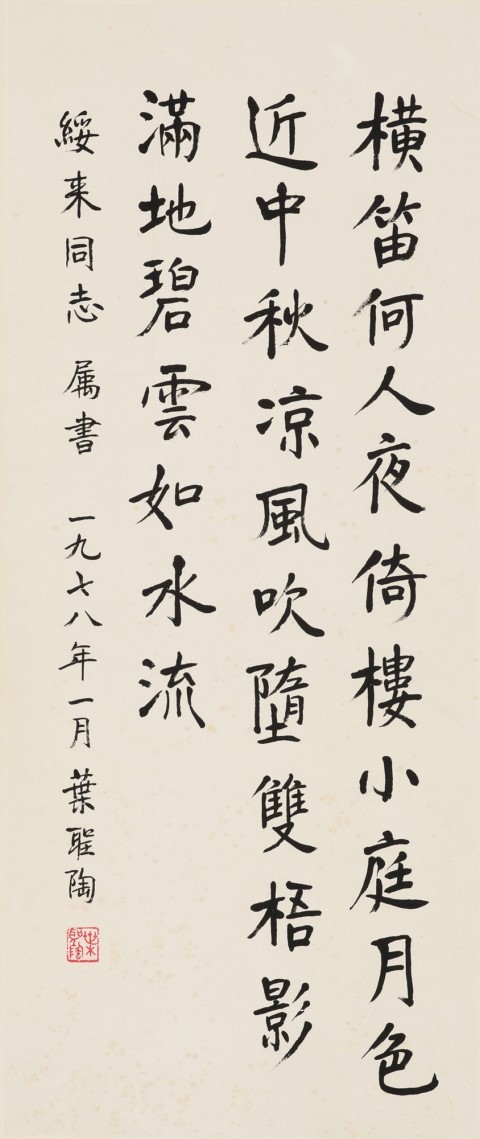 橫笛何人夜倚樓小庭月色
近中秋涼風吹墮雙梧影
滿地碧雲如水流
綏来同志 属書 一九七八年一月 葉聖陶
葉聖陶